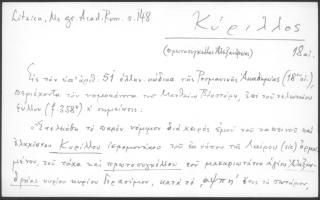 Litzica, Ms gr. Acad. Rom. s. 148
Κύριλλος
(πρωτοσύγκελλος Ἀλεξανδρείας)
18 αἰ.
Εἰς τὸν ὑπ' ἀριθ. 51 ἑλλην. κώδικα τῆς Ρουμανικῆς Ἀκαδημείας (18ου αἰ.),
περιέχοντα τὸν νομοκάνονα τοῦ Ματθαίου Βλαστάρη, ἐπὶ τοῦ τελευταίου
φύλλου (f. 358α) ἡ σημείωσις:
«Ἐτελειώθη τὸ παρὸν νόμιμον διὰ χειρὸς ἐμοῦ τοῦ ταπεινοῦ καὶ
ἐλαχίστου Κυρίλλου ἱερομονάχου τοῦ ἐκ νήσου τῆς Λαίρου (sic) ὁρμω
μένου, τοῦ τάχα καὶ πρωτοσυγκέλλου τοῦ μακαριωτάτου ἁγίου Ἀλεξαν-
δρείας κυρίου κυρίου Γερασίμου, κατὰ τὸ ͵αψπη' ἔτος τὸ σωτήριον,